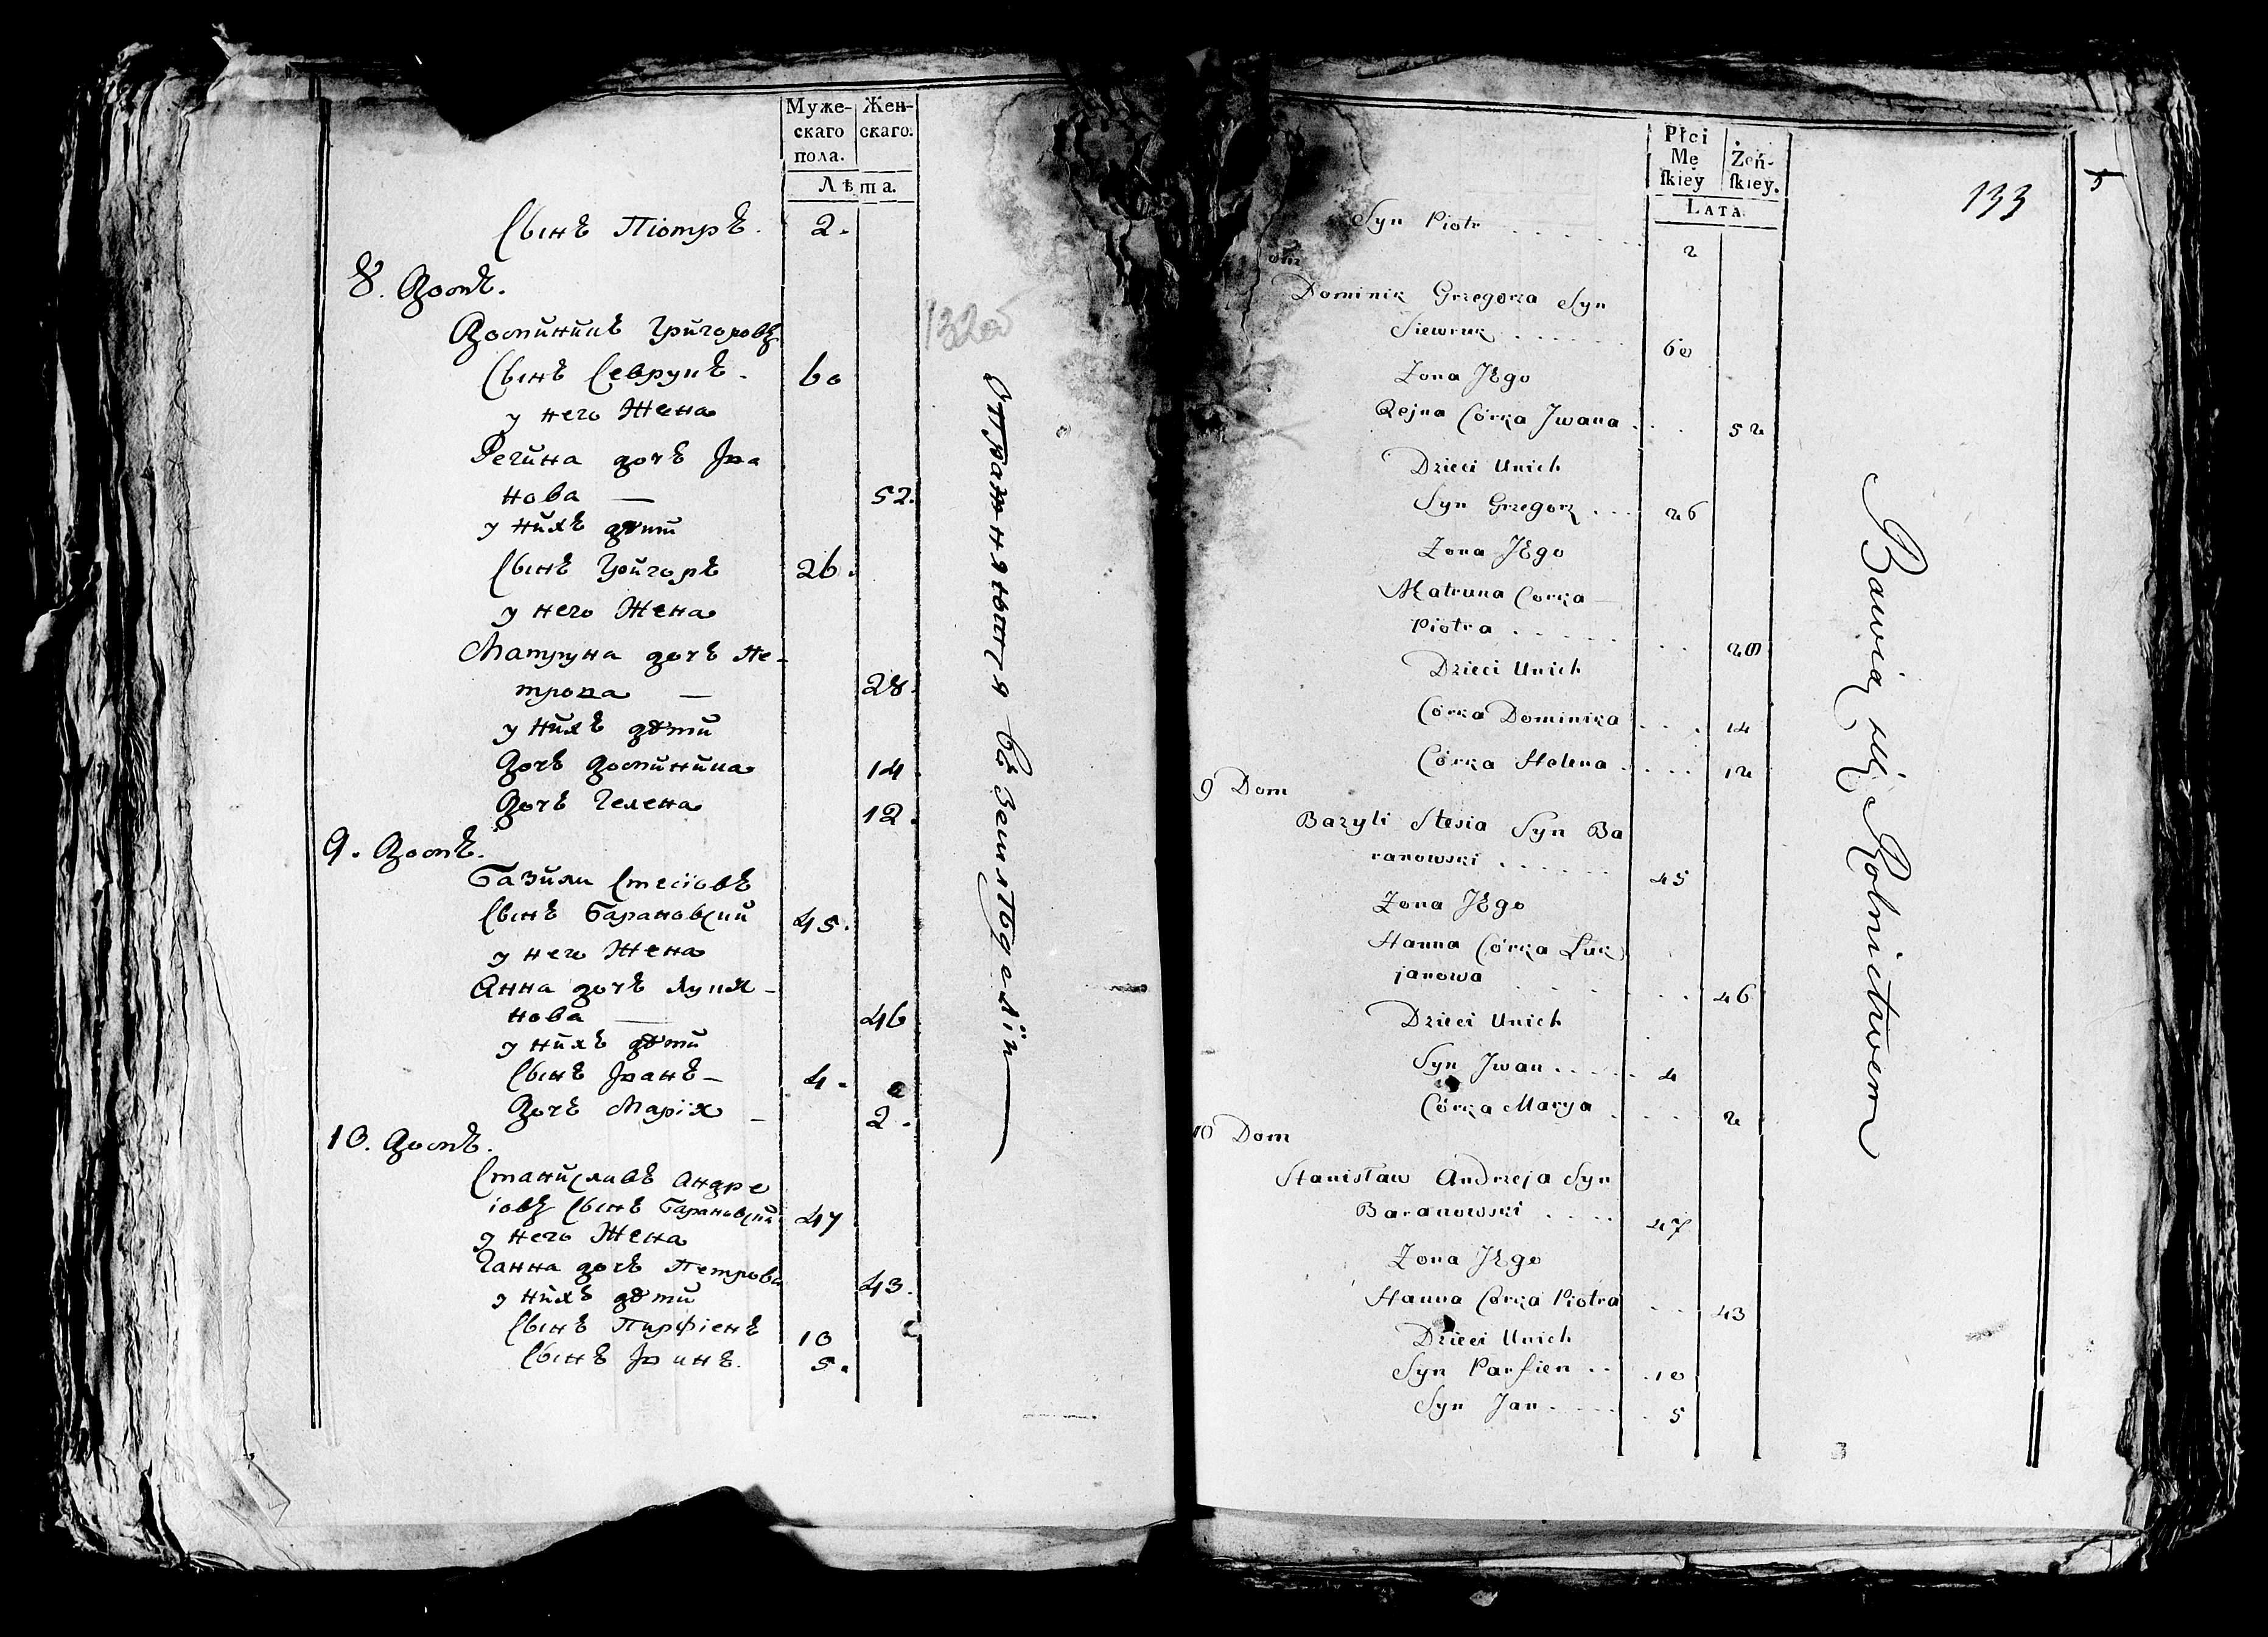 Муже-
скаго
пола.
Жен-
скаго.
Лѣта.
Сынъ Піотръ. 2.
8. Домъ.
Доминикъ Григоровъ
Сынъ Севрукъ. 60
у него Жена
Регина дочъ Ива
нова — 52.
у нихъ дѣти
Сынъ Григоръ 26.
у него Жена
Матруна дочъ Пе-
трова — 28.
у нихъ дѣти
Дочъ Доминика 14.
Дочъ Гелена 12.
9. Домъ.
Базили Стесіовъ
Сынъ Барановскій 45.
у него Жена
Анна дочъ Лукя-
нова — 46
у нихъ дѣти
Сынъ Иванъ — 4.
Дочъ Марія — 2.
10. Домъ.
Станиславъ Андре
іовъ Сынъ Барановскій 47
у него Жена
Ганна дочъ Петрова 43.
у нихъ дѣти
Сынъ Парфіенъ 10
Сынъ Иванъ. 5.
132об
Упражняются въ Земледеліи
Płci
Mę
ſkiey
Żeń-
ſkiey.
LATA
133
5
Syn Piotr . . . . . . 2
om
Dominik Grzegorza Syn
Siewruk . . . . . . 60
Zona JEgo
Rejna Córka Jwana . . . 52
Dzieci Unich
Syn Grzegorz . . . 26
Zona JEgo
Matruna Corka
Piotra . . . . . . . 28
Dzieci Unich
Córka Dominika . . . 14
Córka Helena . . . . 12
9 Dom
Bazyli Stesia Syn Ba
ranowski . . . . . . 45
Zona JEgo
Hanna Córka Luk
janowa . . . . . 46
Dzieci Unich
Syn Jwan . . . . . 4
Córka Marya . . . . 2
10 Dom
Stanisław Andrzeja Syn
Baranowski . . . . 47
Zona JEgo
Hanna Córka Piotra . . 43
Dzieci Unich
Syn Parfien . . . 10
Syn Jan . . . . . 5
Bawią się Rolnictwem